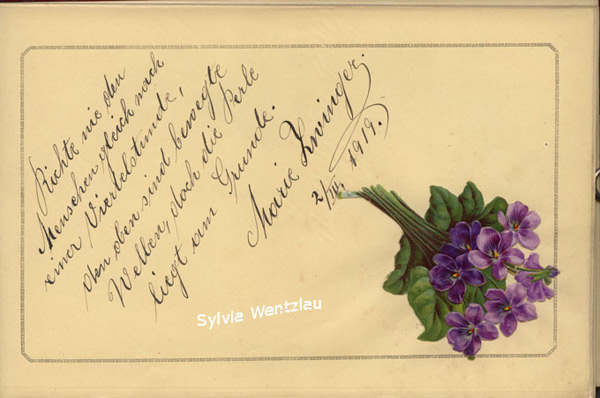 Richte nie den
Menschen gleich nach
einer Viertelstunde,
den oben sind bewegte
Wellen, doch die Perle
liegt am Grunde.
Marie Zwinger.
2/III. 1919.
Sylvia Wentzlau